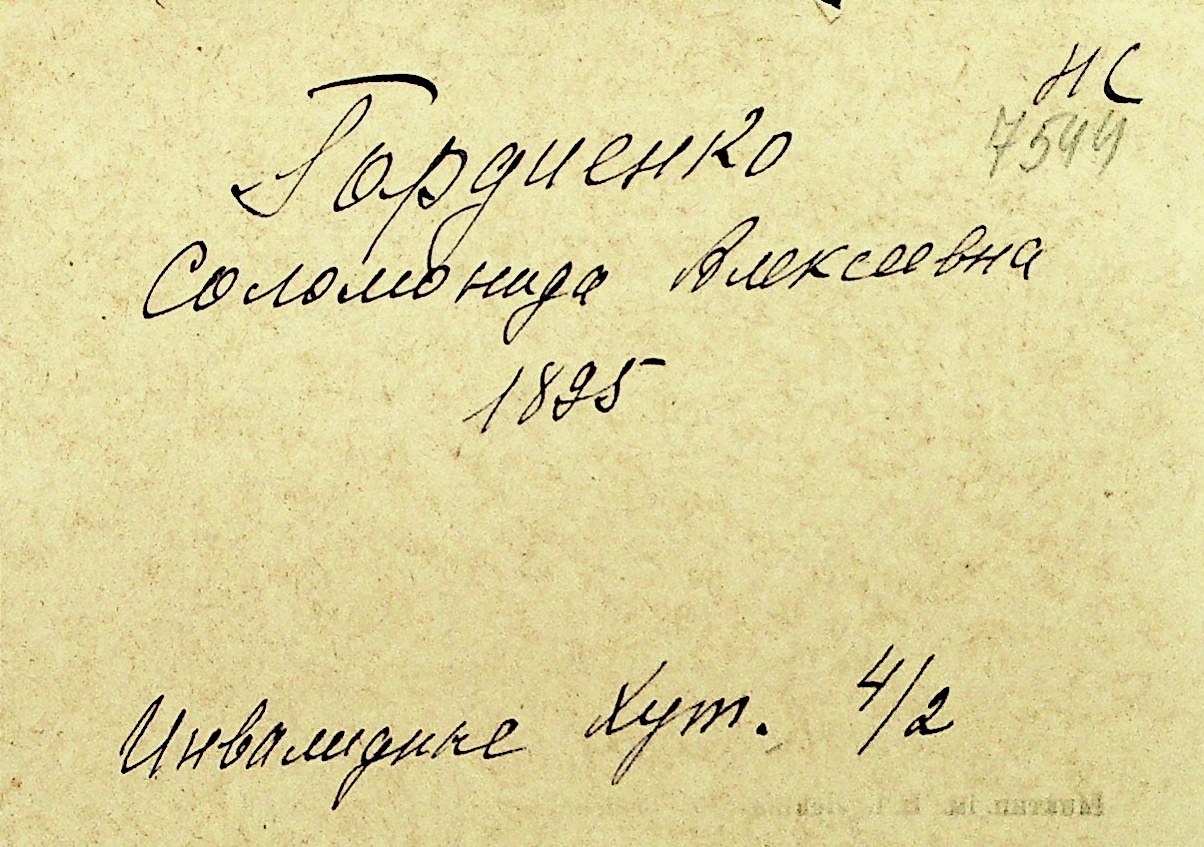 НС
7544
Гордиенко
Соломонида Алексеевна
1895
Инвалидные Хут. 4/2